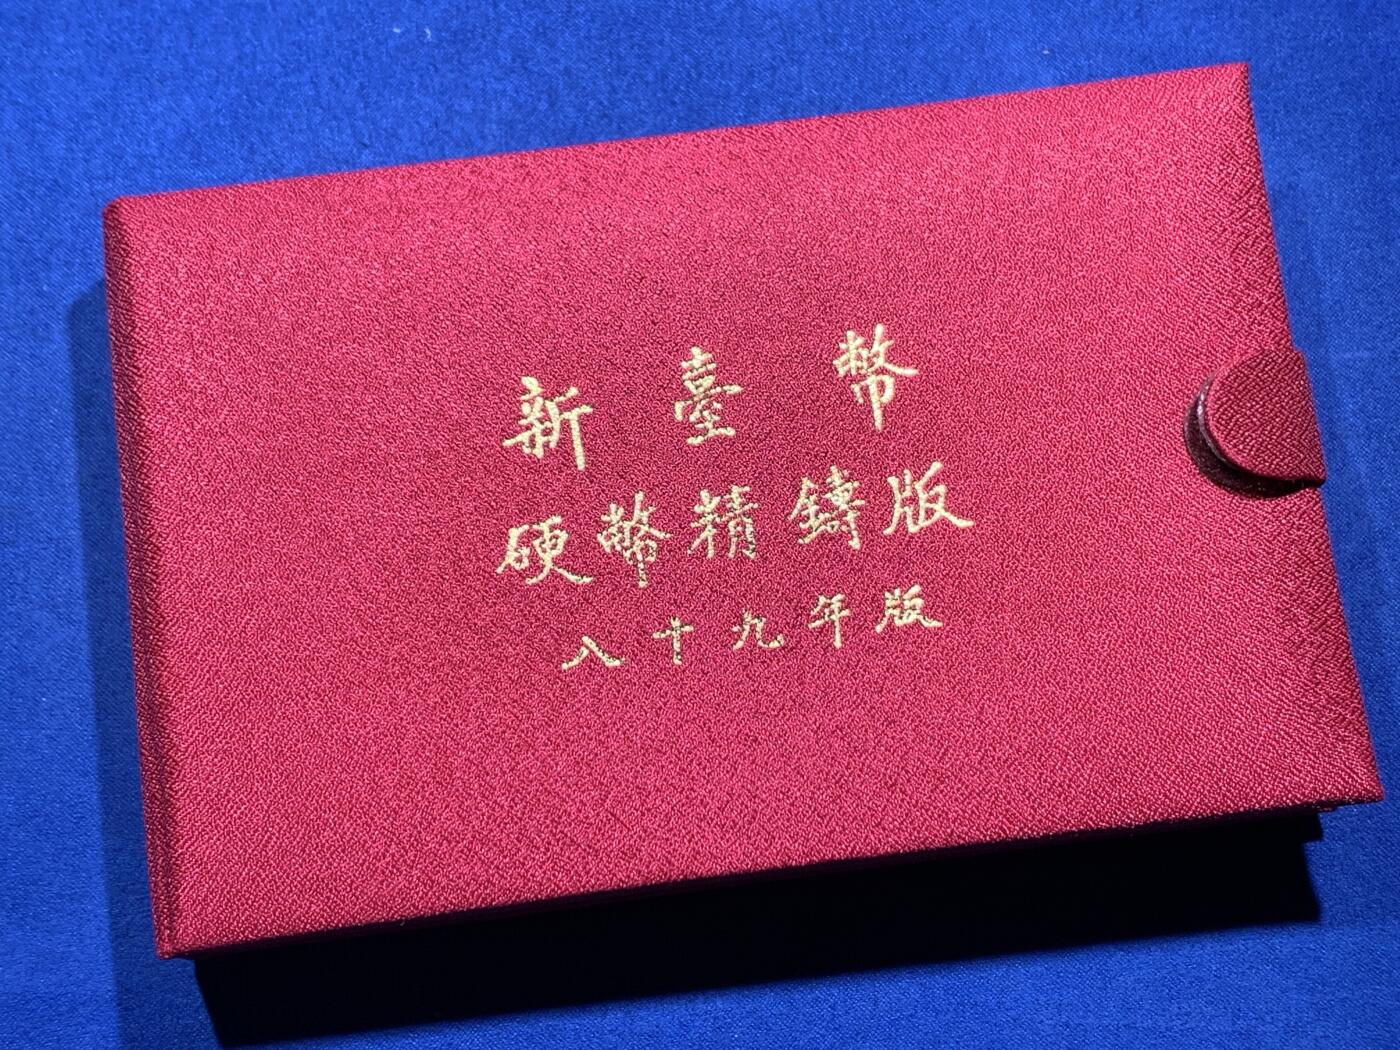 新臺幣
硬幣精鑄版
八十九年版